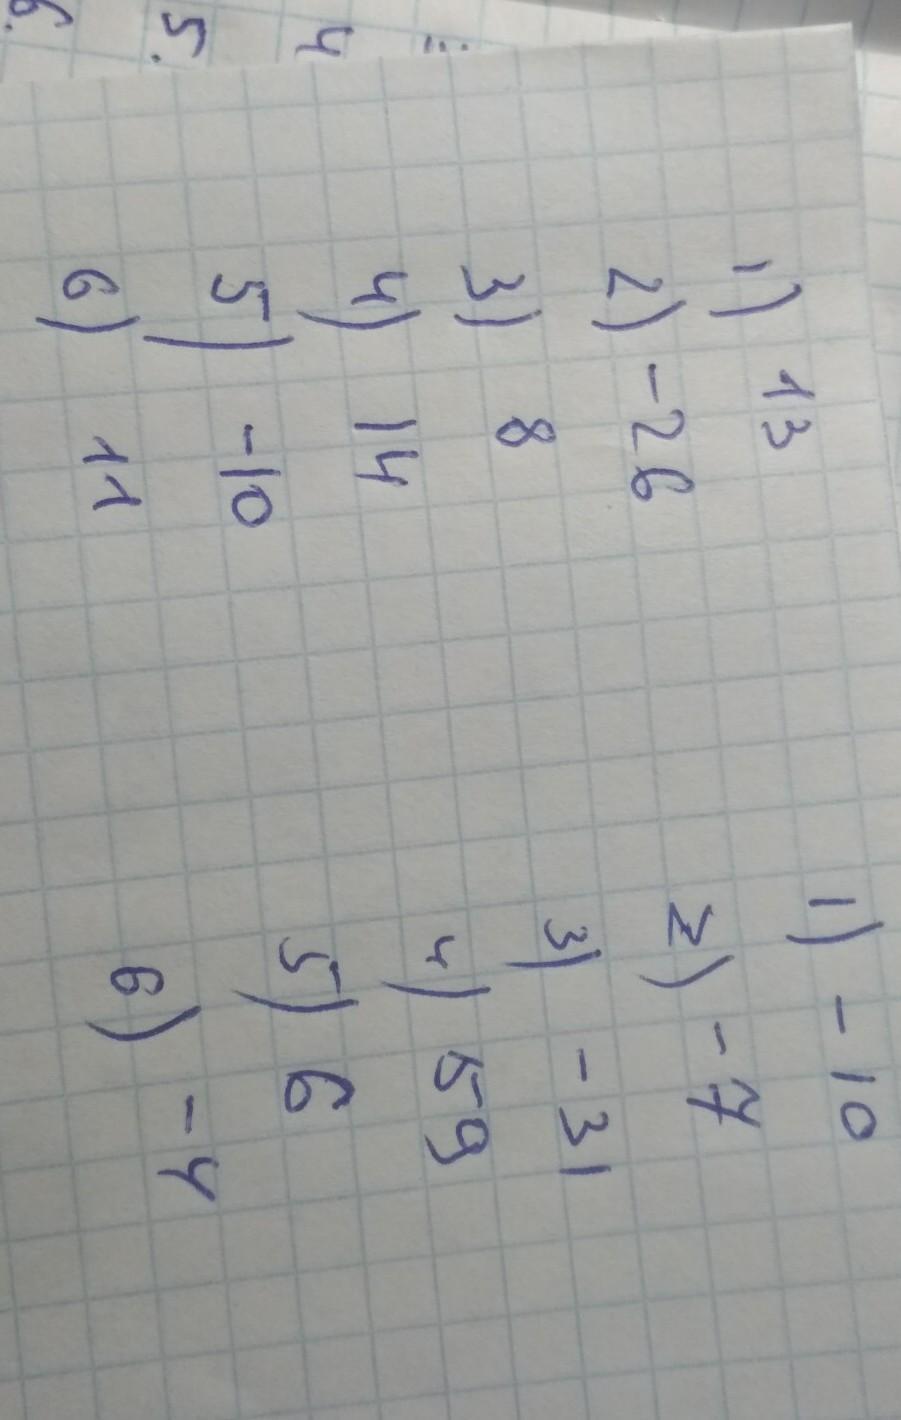 4
5.
6.
1) 13
2) -26
3) 8
4) 14
5) -10
6) 11
1) -10
2) -7
3) -31
4) 59
5) 6
6) -4